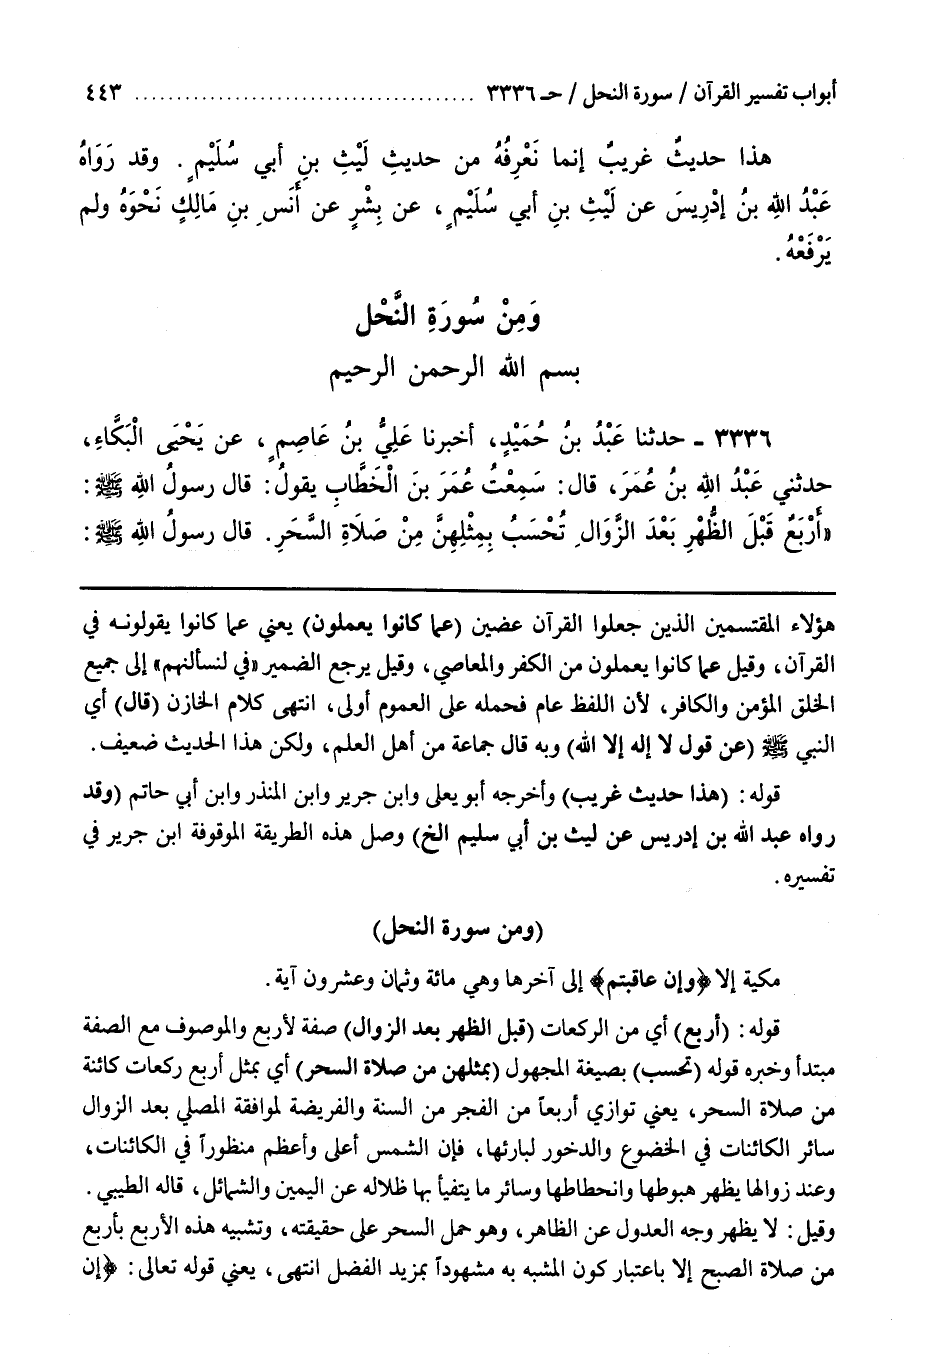 أبواب تفسير القرآن / سورة النحل / حـ ٣٣٣٦ ........................................ ٤٤٣
هذا حديثٌ غريبٌ إنما نَعْرِفُهُ من حديثِ لَيْثِ بنِ أبي سُلَيْمٍ . وقد رَوَاهُ
عَبْدُ اللهِ بنُ إدْرِيسَ عن لَيْثِ بنِ أبي سُلَيْمٍ ، عن بِشْرٍ عن أَنَسِ بنِ مَالِكٍ نَحْوَهُ ولم
يَرْفَعْهُ .
وَمِنْ سُورَةِ النَّحْل
بسم الله الرحمن الرحيم
٣٣٣٦ ـ حدثنا عَبْدُ بنُ حُمَيْدٍ، أخبرنا عَلِيُّ بنُ عَاصِمٍ ، عن يَحْيَى الْبَكَّاءِ،
حدثني عَبْدُ اللهِ بنُ عُمَرَ، قال: سَمِعْتُ عُمَرَ بنَ الْخَطَّابِ يقولُ: قال رسولُ اللهِ ﷺ:
«أَرْبَعٌ قَبْلَ الظُّهْرِ بَعْدَ الزَّوَالِ تُحْسَبُ بِمِثْلِهِنَّ مِنْ صَلَاةِ السَّحَرِ. قال رسولُ اللهِ ﷺ:
هؤلاء المقتسمين الذين جعلوا القرآن عضين (عما كانوا يعملون) يعني عما كانوا يقولونـه في
القرآن، وقيل عما كانوا يعملون من الكفر والمعاصي، وقيل يرجع الضمير «في لنسألنهم» إلى جميع
الخلق المؤمن والكافر، لأن اللفظ عام فحمله على العموم أولى، انتهى كلام الخازن (قال) أي
النبي ﷺ (عن قول لا إله إلا الله) وبه قال جماعة من أهل العلم، ولكن هذا الحديث ضعيف.
قوله: (هذا حديث غريب) وأخرجه أبو يعلى وابن جرير وابن المنذر وابن أبي حاتم (وقد
رواه عبد الله بن إدريس عن ليث بن أبي سليم الخ) وصل هذه الطريقة الموقوفة ابن جرير في
تفسيره.
(ومن سورة النحل)
مكية إلا ﴿وإن عاقبتم﴾ إلى آخرها وهي مائة وثمان وعشرون آية.
قوله: (أربع) أي من الركعات (قبل الظهر بعد الزوال) صفة لأربع والموصوف مع الصفة
مبتدأ وخبره قوله (تحسب) بصيغة المجهول (بمثلهن من صلاة السحر) أي بمثل أربع ركعات كائنة
من صلاة السحر، يعني توازي أربعاً من الفجر من السنة والفريضة لموافقة المصلي بعد الزوال
سائر الكائنات في الخضوع والدخور لبارئها، فإن الشمس أعلى وأعظم منظوراً في الكائنات،
وعند زوالها يظهر هبوطها وانحطاطها وسائر ما يتفيأ بها ظلاله عن اليمين والشمائل، قاله الطيبي.
وقيل: لا يظهر وجه العدول عن الظاهر، وهو حمل السحر على حقيقته، وتشبيه هذه الأربع بأربع
من صلاة الصبح إلا باعتبار كون المشبه به مشهوداً بمزيد الفضل انتهى، يعني قوله تعالى: ﴿إن